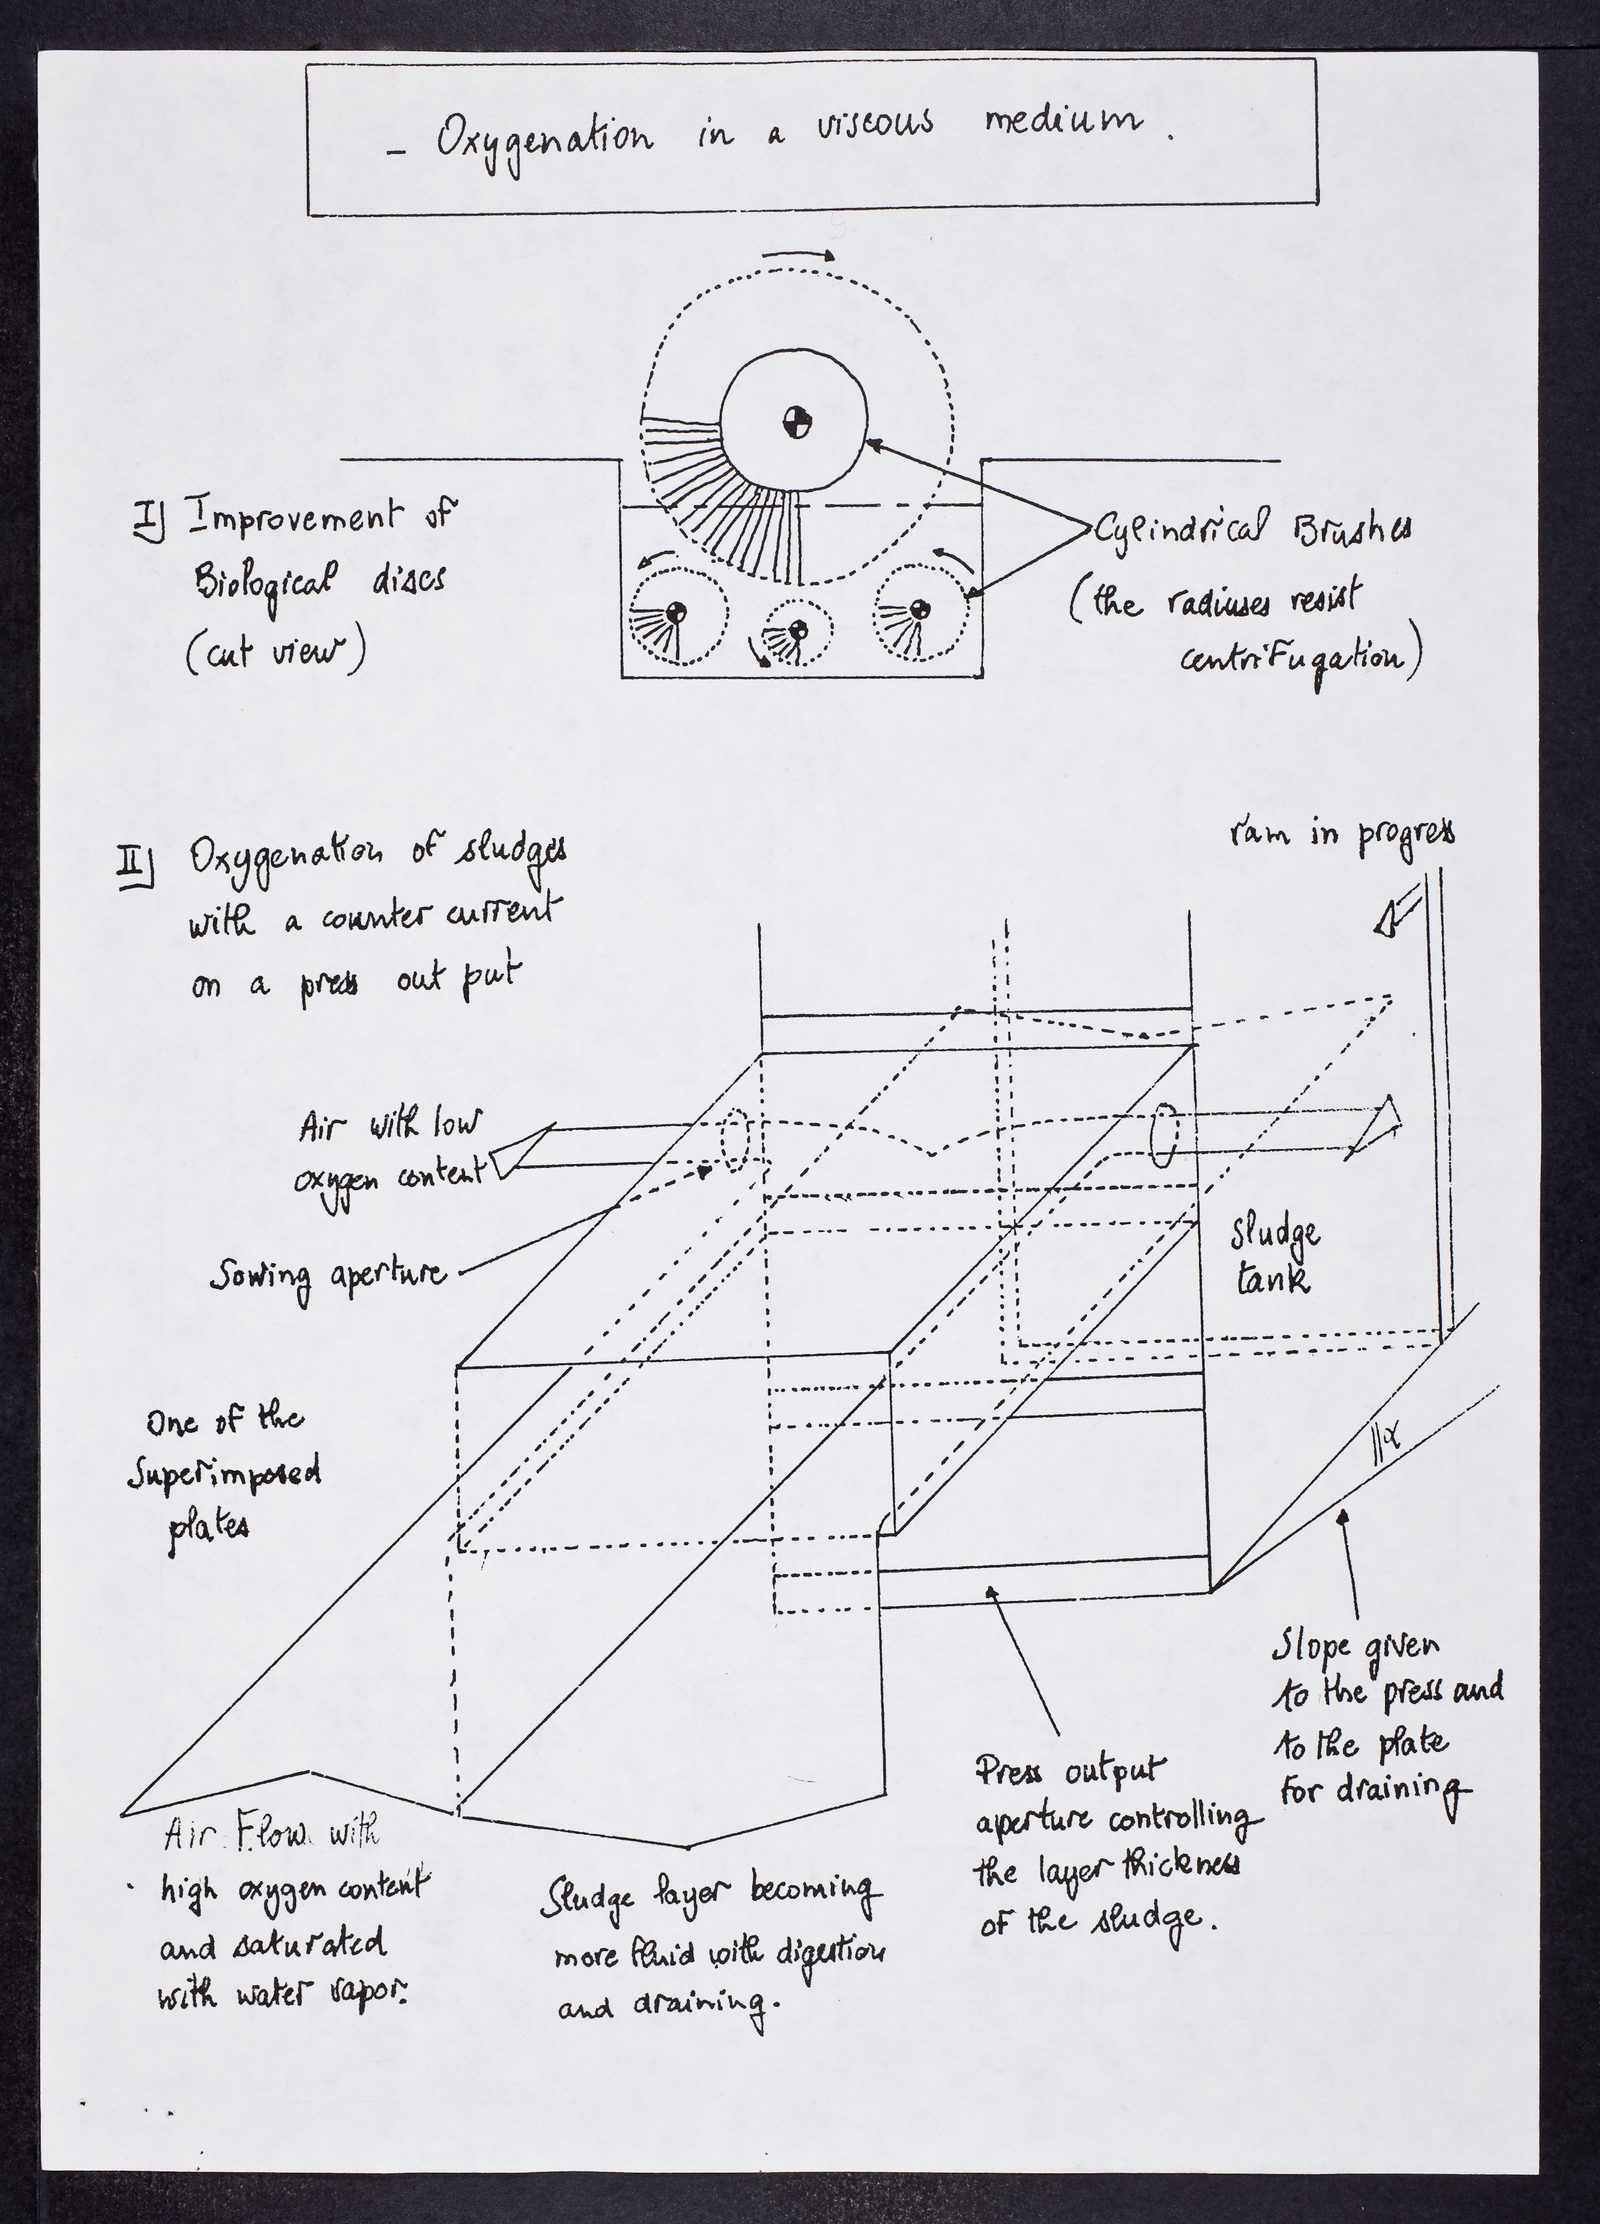 - Oxygenation in a viscous medium.
I] Improvement of
Biological discs
(cut view)
Cylindrical Brushes
(the radiuses resist
centrifugation)
II] Oxygenation of sludges
with a counter current
on a press out put
ram in progress
Air with low
oxygen content
Sowing aperture
Sludge
tank
One of the
Superimposed
plates
α
Slope given
to the press and
to the plate
for draining
Press output
aperture controlling
the layer thickness
of the sludge.
Air Flow with
high oxygen content
and saturated
with water vapor.
Sludge layer becoming
more fluid with digestion
and draining.